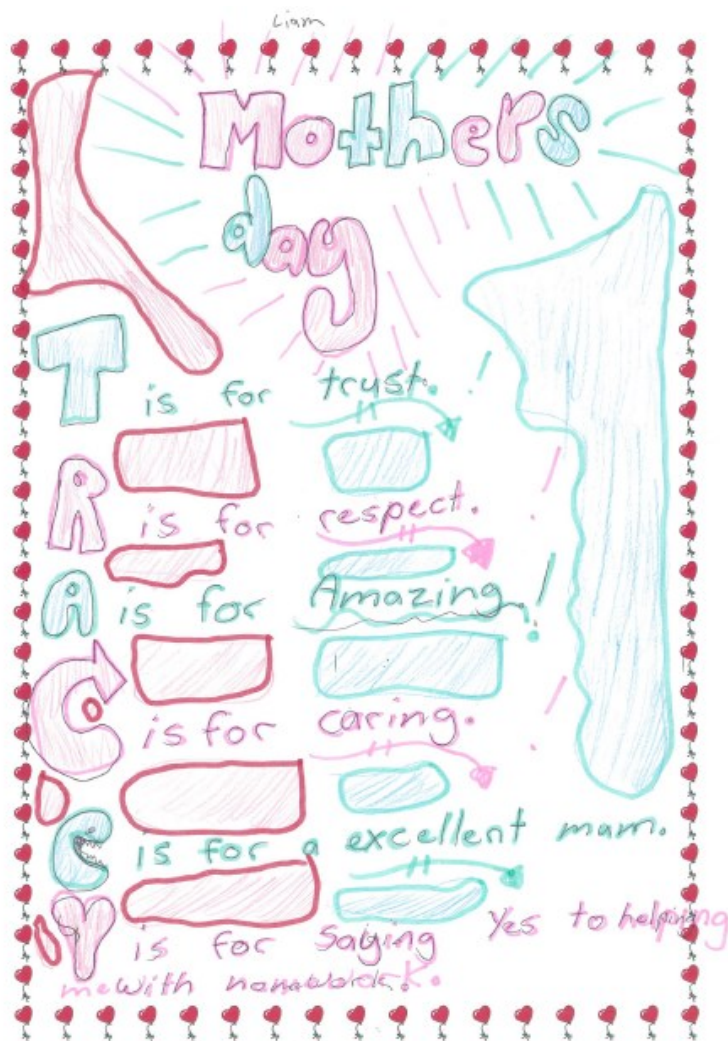 Liam
Mothers
day
T is for trust.
R is for respect.
A is for Amazing!
C is for caring.
E is for a excellent mam.
Y is for saying Yes to helping
me with